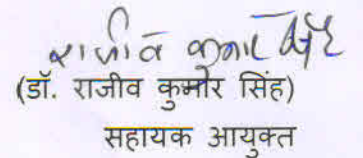 राजीव कुमार सिंह
(डॉ. राजीव कुमार सिंह)
सहायक आयुक्त